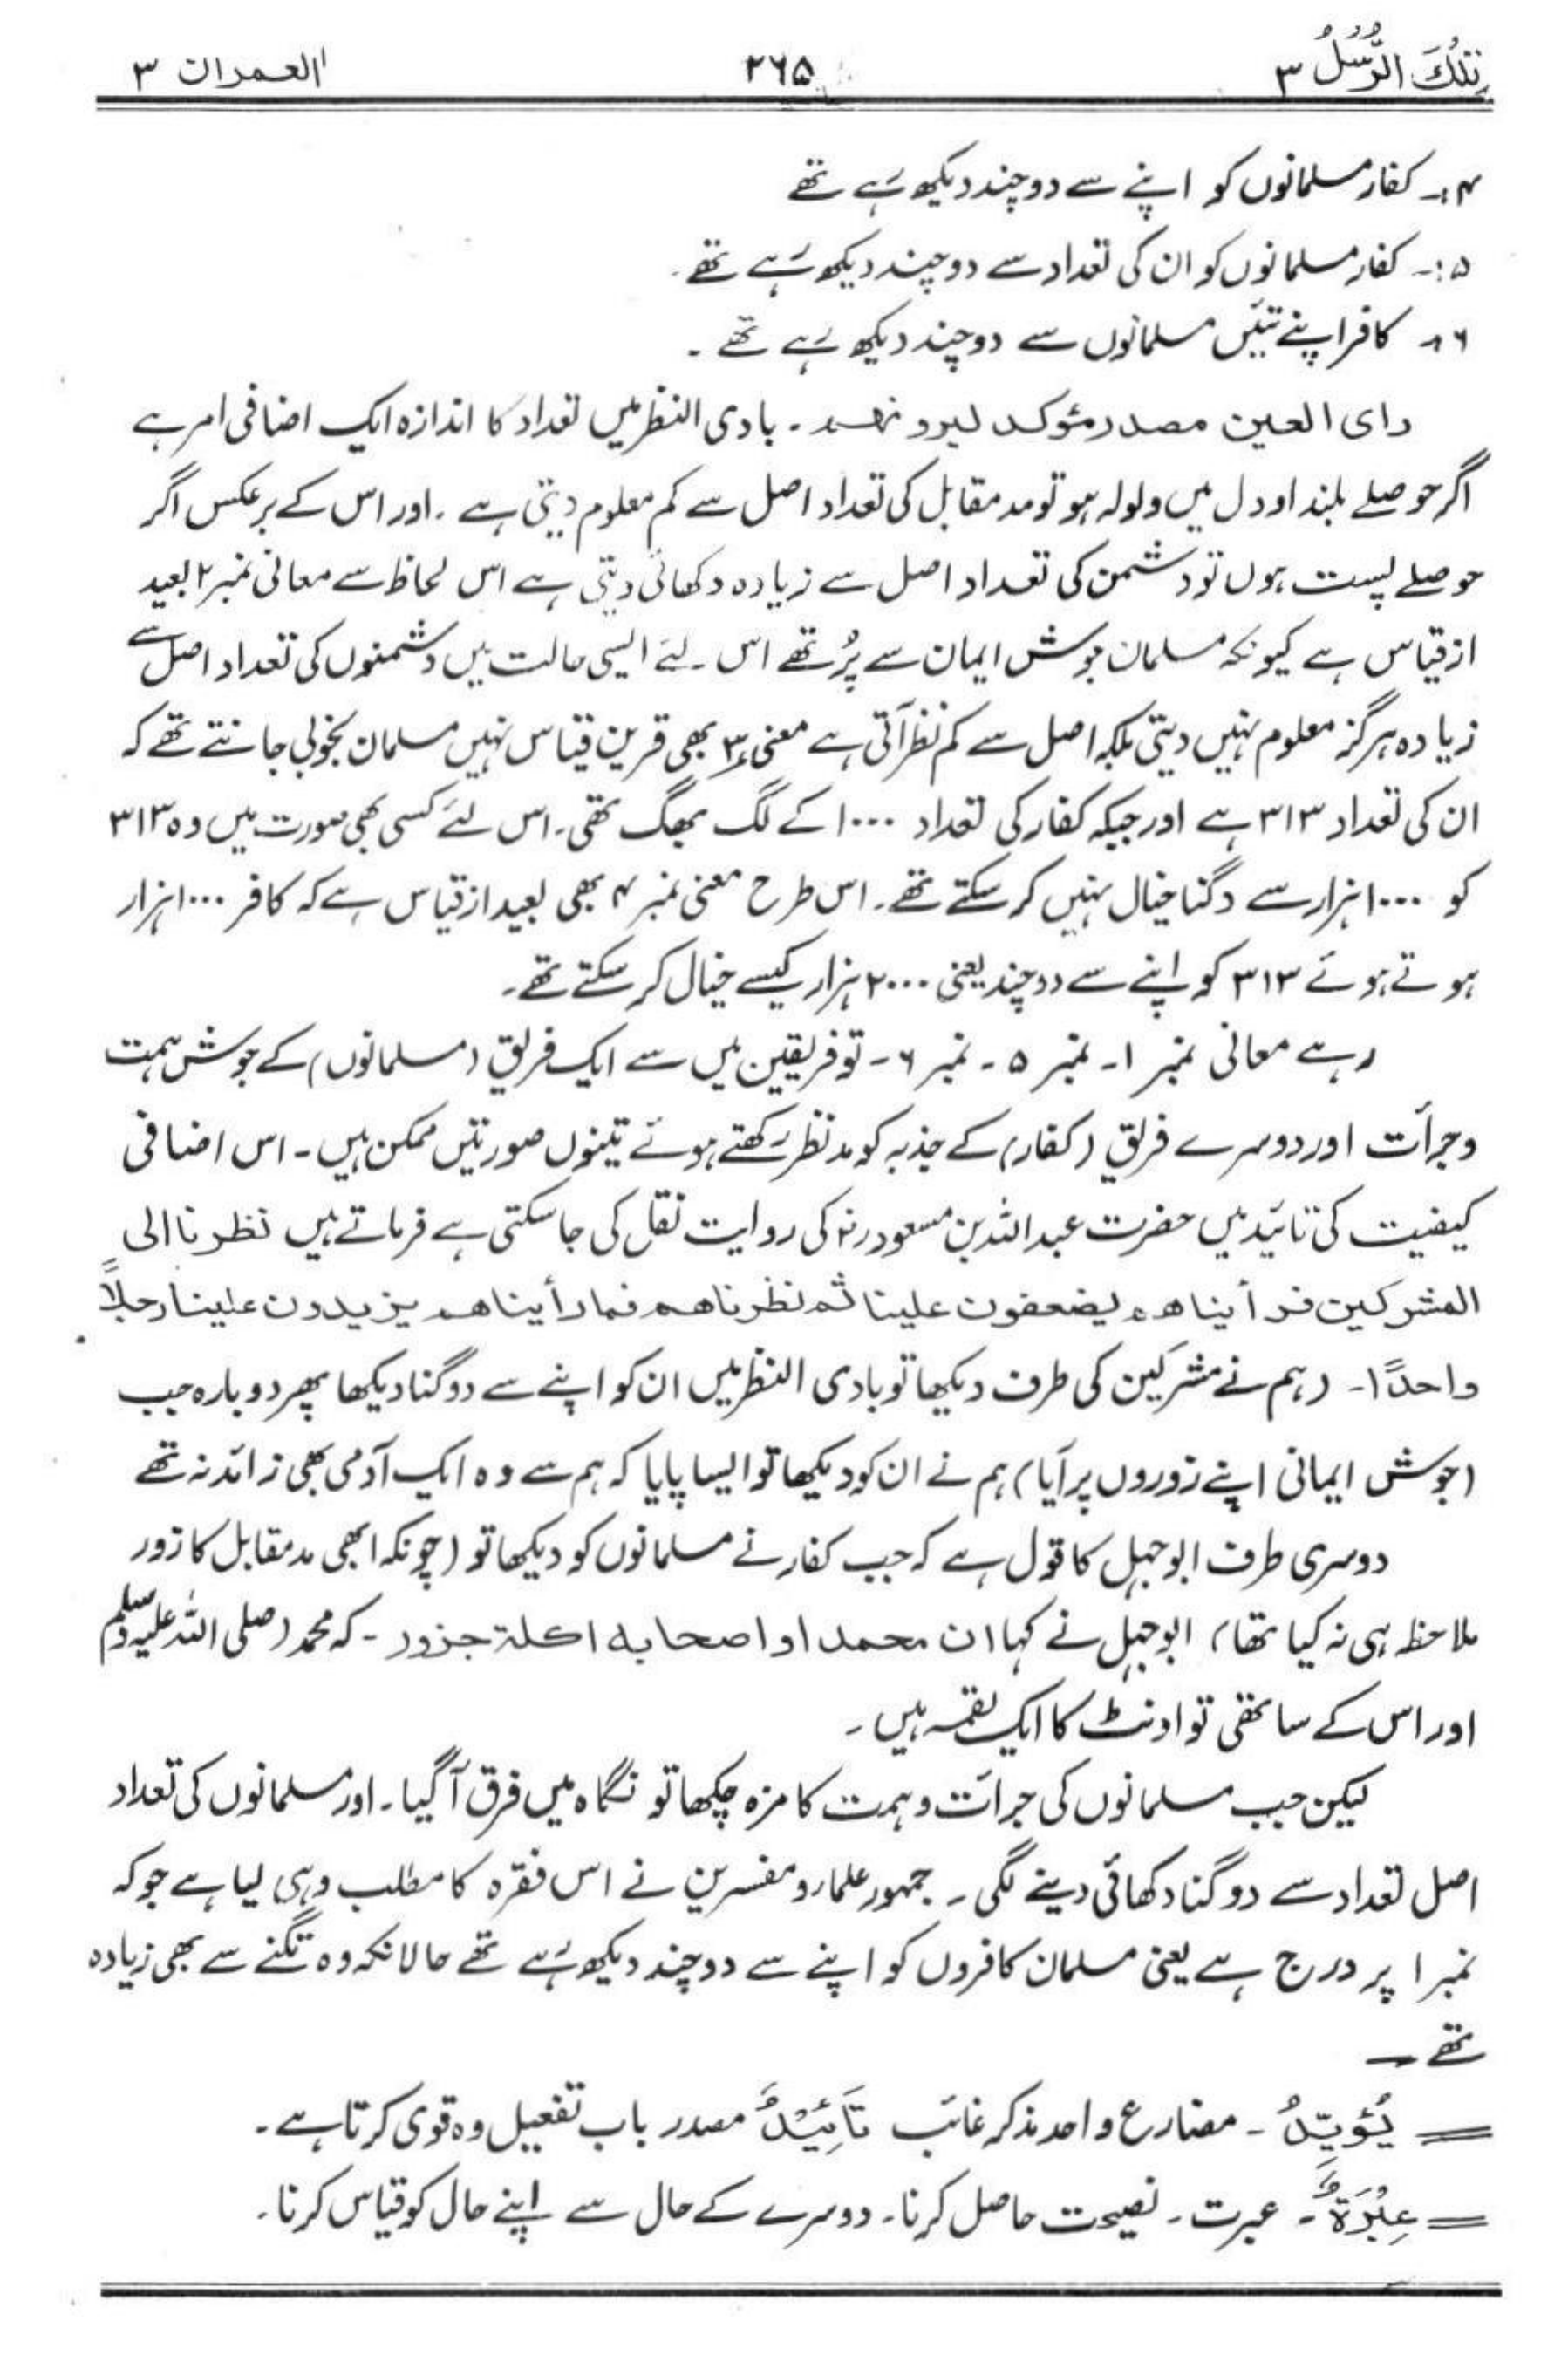 تِلْكَ الرُّسُلُ ۳ ۲۶۵ اٰلعمران ۳
۴:۔ کفار مسلمانوں کو اپنے سے دوچند دیکھ رہے تھے
۵:۔ کفار مسلمانوں کو ان کی تعداد سے دوچند دیکھ رہے تھے۔
۶:۔ کافر اپنے تئیں مسلمانوں سے دوچند دیکھ رہے تھے ۔
رای العین مصدر مؤکد لیرونھم ۔ بادی النظر میں تعداد کا اندازہ ایک اضافی امر ہے
اگر حوصلے بلند اور دل میں ولولہ ہو تو مد مقابل کی تعداد اصل سے کم معلوم دیتی ہے ۔ اور اس کے برعکس اگر
حوصلے پست ہوں تو دشمن کی تعداد اصل سے زیادہ دکھائی دیتی ہے اس لحاظ سے معانی نمبر ۲ بعید
از قیاس ہے کیونکہ مسلمان جوش ایمان سے پُر تھے اس لئے ایسی حالت میں دشمنوں کی تعداد اصل سے
زیادہ ہرگز معلوم نہیں دیتی بلکہ اصل سے کم نظر آتی ہے معنی ۳ بھی قرین قیاس نہیں مسلمان بخوبی جانتے تھے کہ
ان کی تعداد ۳۱۳ ہے اور جبکہ کفار کی تعداد ۱۰۰۰ کے لگ بھگ تھی۔ اس لئے کسی بھی صورت میں وہ ۳۱۳
کو ۱۰۰۰ ہزار سے دگنا خیال نہیں کر سکتے تھے۔ اس طرح معنی نمبر ۴ بھی بعید از قیاس ہے کہ کافر ۱۰۰۰ ہزار
ہوتے ہوئے ۳۱۳ کو اپنے سے دوچند یعنی ۲۰۰۰ ہزار کیسے خیال کر سکتے تھے۔
رہے معانی نمبر ۱۔ نمبر ۵ ۔ نمبر ۶ ۔ تو فریقین میں سے ایک فریق (مسلمانوں) کے جوش ہمت
وجرأت اور دوسرے فریق (کفار) کے جذبہ کو مد نظر رکھتے ہوئے تینوں صورتیں ممکن ہیں ۔ اس اضافی
کیفیت کی تائید میں حضرت عبداللہ بن مسعود رض کی روایت نقل کی جاسکتی ہے فرماتے ہیں نظرنا الی
المشرکین فرأیناھم یضعفون علینا ثم نظرناھم فما رأیناھم یزیدون علینا رجلاً
واحدًا۔ (ہم نے مشرکین کی طرف دیکھا تو بادی النظر میں ان کو اپنے سے دوگنا دیکھا پھر دوبارہ جب
(جوش ایمانی اپنے زوروں پر آیا) ہم نے ان کو دیکھا تو ایسا پایا کہ ہم سے وہ ایک آدمی بھی زائد نہ تھے
دوسری طرف ابوجہل کا قول ہے کہ جب کفار نے مسلمانوں کو دیکھا تو (چونکہ ابھی مد مقابل کا زور
ملاحظہ ہی نہ کیا تھا) ابوجہل نے کہا ان محمد او اصحابه اکلة جزور ۔ کہ محمد (صلی اللہ علیہ وسلم
اور اس کے ساتھی تو اونٹ کا ایک لقمہ ہیں ۔
لیکن جب مسلمانوں کی جرأت وہمت کا مزہ چکھا تو نگاہ میں فرق آگیا۔ اور مسلمانوں کی تعداد
اصل تعداد سے دوگنا دکھائی دینے لگی ۔ جمہور علماء و مفسرین نے اس فقرہ کا مطلب وہی لیا ہے جو کہ
نمبر ۱ پر درج ہے یعنی مسلمان کافروں کو اپنے سے دوچند دیکھ رہے تھے حالانکہ وہ تگنے سے بھی زیادہ
تھے ۔
= یُؤَیِّدُ ۔ مضارع واحد مذکر غائب تَأْیِیْدٌ مصدر باب تفعیل وہ قوی کرتا ہے ۔
= عِبْرَةٌ ۔ عبرت ۔ نصیحت حاصل کرنا۔ دوسرے کے حال سے اپنے حال کو قیاس کرنا ۔